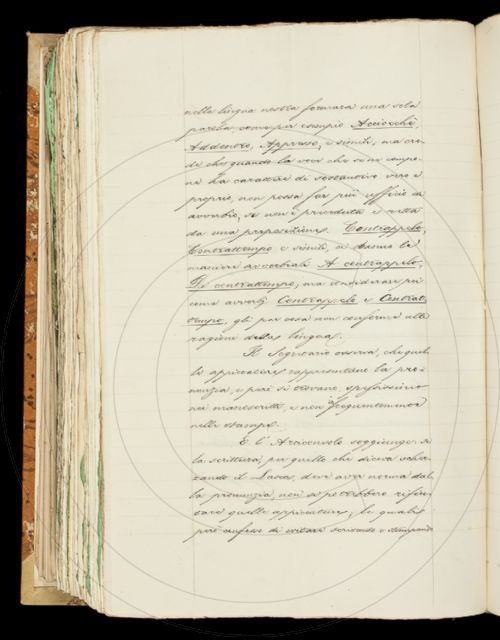 nella lingua nostra formare una sola
parola come per esempio Acciocchè,
Addentro, Appresso, e simili; ma cre-
de che quando la voce che si compo-
ne ha carattere di sostantivo vero e
proprio, non possa far più ufficio di
avverbio, se non è preceduta e retta
da una preposizione. Contrappelo,
Contrattempo e simili, ci danno le
maniere avverbiali A contrappelo,
Di contrattempo, ma considerar poi
come avverbj Contrappelo e Contrat-
tempo, gli par cosa non conforme alle
ragioni della lingua.
Il Segretario osserva, che quel-
le appiccature rappresentano la pro-
nunzia, e però si trovano, spessissimo
nei manoscritti, e non infrequentemente
nelle stampe.
E l'Arciconsolo soggiunge: se
la scrittura, per quello che diceva scher-
zando il Lasca, deve aver norma dal-
la pronunzia, non si potrebbero rifiu-
tare quelle appiccature; le quali
però confessa di evitare scrivendo e stampando